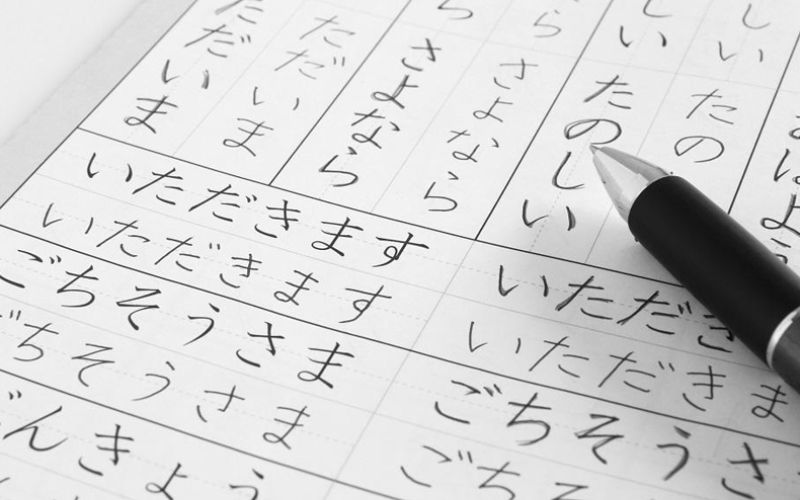 はよ
しい
たのしい
しい
たの
ら
さよなら
ら
さよなら
ただいま
ただいま
いただきます
いただきます
ごちそうさま
ごちそうさま
んきょう
いただき
いただきま
ごちそうさ
ごちそ